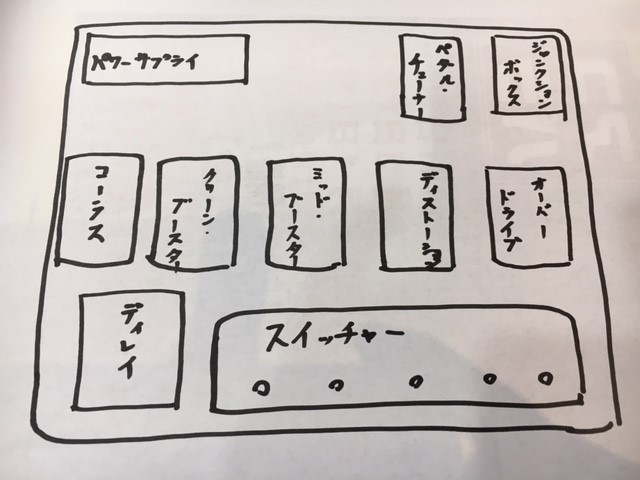 パワーサプライ
ペダル・
チューナー
ジャンクション
ボックス
コーラス
クリーン・
ブースター
ミッド・
ブースター
ディストーション
オーバー
ドライブ
ディレイ
スイッチャー